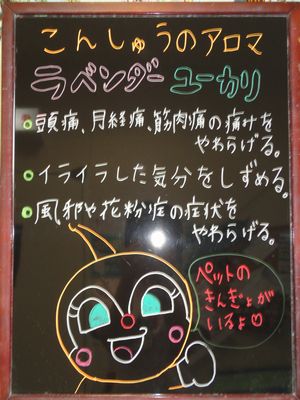 こんしゅうのアロマ
ラベンダー ユーカリ
頭痛、月経痛、筋肉痛の痛みを
やわらげる。
イライラした気分をしずめる。
風邪や花粉症の症状を
やわらげる。
ペットの
きんぎょが
いるよ♡